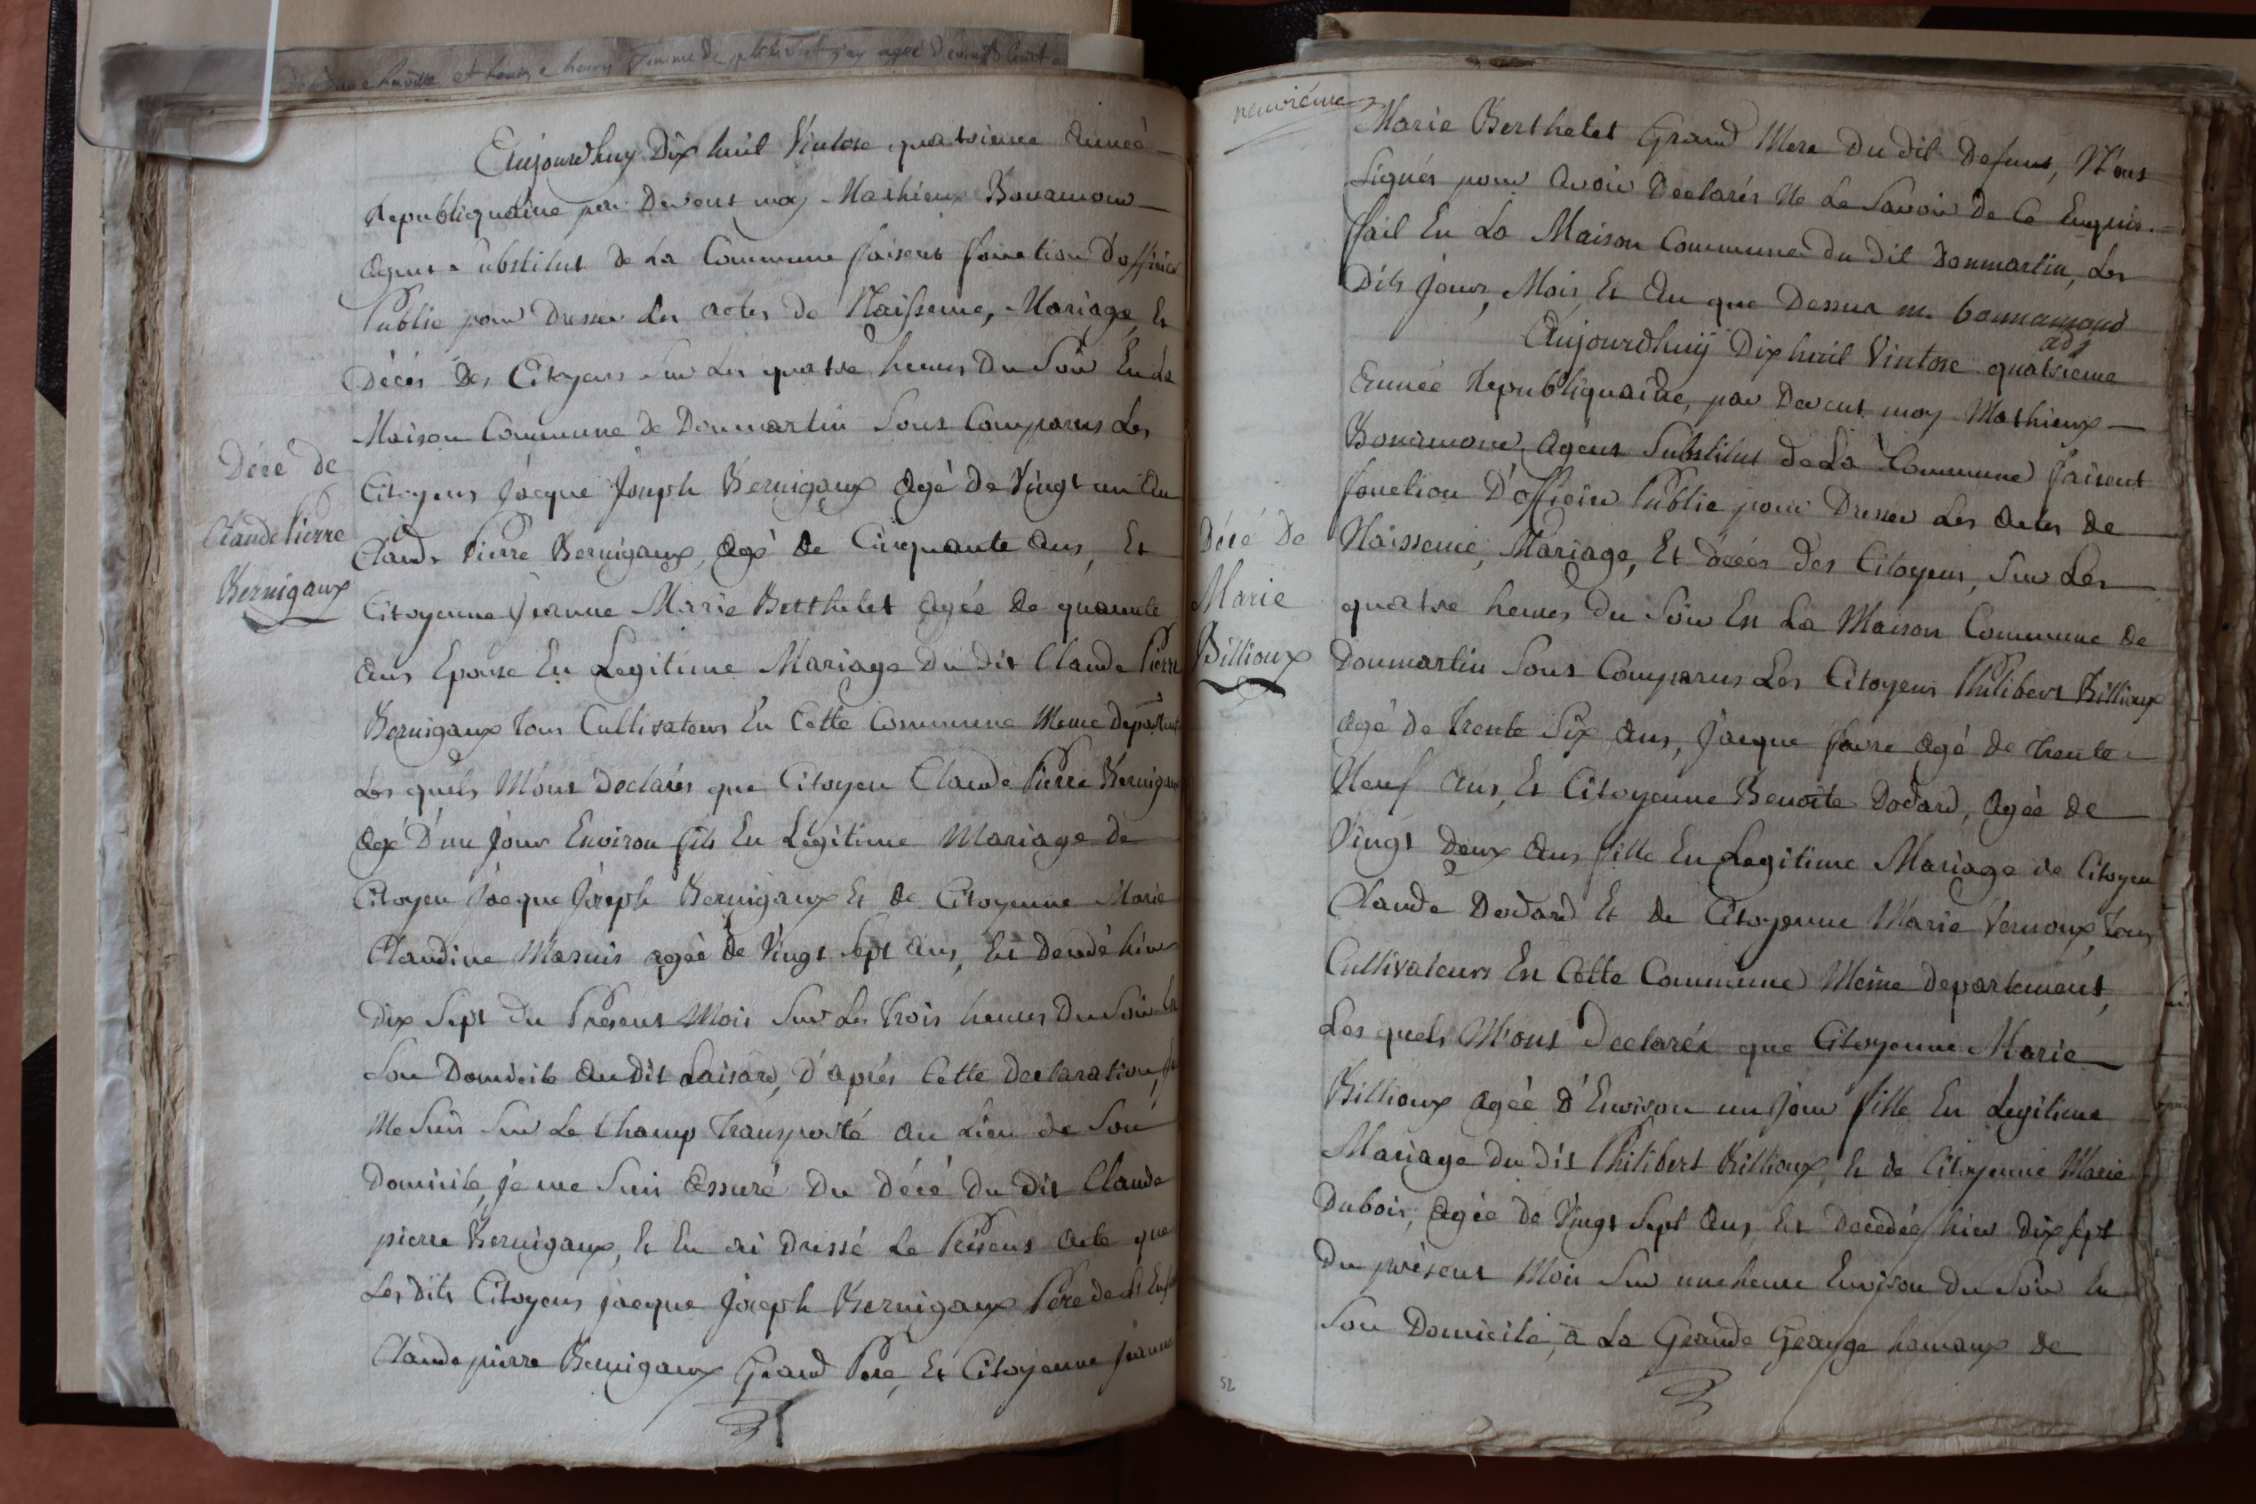 Aujourdhuy Dix huit Vintose quatrieme Année
Republiquaine par Devent moy Mathieux Bonamour
Agent substitut de La Commune faisent fonction D'officier
Public pour Dresser Les actes de Naissence, Mariage, Et
Décés Des Citoyens sur Les quatre heures Du Soir En La
Maison Commune de Donmartin Sont Comparus Les
Décé de
Claude Pierre
Bernigaux
Citoyens Jacque Joseph Bernigaux Agé De Vingt un An
Claude Pierre Bernigaux, Agé De Cinquante Ans, Et
Citoyenne Jeanne Marie Berthelet Agée De quarente
Ans Epouse En Legitime Mariage Du dit Claude Pierre
Bernigaux tous Cultivateurs En Cette Commune Meme
Les quels M'ont Declarés que Citoyen Claude Pierre
Agé D'un Jour Environ fils En Légitime Mariage de
Citoyen Jacque Joseph Bernigaux Et de Citoyenne Marie
Claudine agée De Vingt sept Ans, Est hier
Dix Sept Du Présent Mois Sur Les Trois heures Du Soir En
Son Domicile Au Dit, D'aprés Cette Declaration, Je
Me Suis Sur Le Champ Transporté Au Lieu de Son
Domicile, Je me Suis Assuré Du Décé Du Dit Claude
pierre Bernigaux, Et En ai Dressé Le Présent Acte que
Les dits Citoyens jacque Joseph Bernigaux Pére
Claude pierre Bernigaux Grand Pere, Et Citoyenne Jeanne
neuviéme
Marie Berthelet Grand Mere Du dit Defunt, N'ont
Signés pour Avoir Declarés Ne Le Savoir De Ce Enquis.
ffait En La Maison Commune du Dit Donmartin, Les
Dits Jour, Mois, Et An que Dessus m. bonnamour
ads
Aujourdhuy Dix huit Vintose quatrieme
Année Republiquaine, par Devent moy Mathieux
Bonamour, Agent Substitut de La Commune faisent
fonction D'officier Public pour Dresser Les Actes De
Décé De
Marie
Billioux
Naissence, Mariage, Et Décés Des Citoyens, Sur Les
quatre heures Du Soir En La Maison Commune De
Donmartin Sont Comparus Les Citoyens Philibert Billioux
Agé De Trente Six Ans, Jacque favre Agé De Trente
Neuf Ans, Et Citoyenne Benoite Dodard, Agée De
Vingt Deux Ans fille En Legitime Mariage de Citoyen
Claude Dodard Et De Citoyenne Marie Vernoux Tous
Cultivateurs En Cette Commune Meme Departement,
Les quels M'ont Declarés que Citoyenne Marie
Billioux Agée D'Environ un Jour fille En Legitime
Mariage du Dit Philibert Billioux, Et de Citoyenne Marie
Dubois, Agée De Vingt Sept Ans, Est Decedée hier Dix Sept
Du présent Mois Sur une heure Environ Du Soir En
Son Domicile, a La Grande Grange hamaux De
52